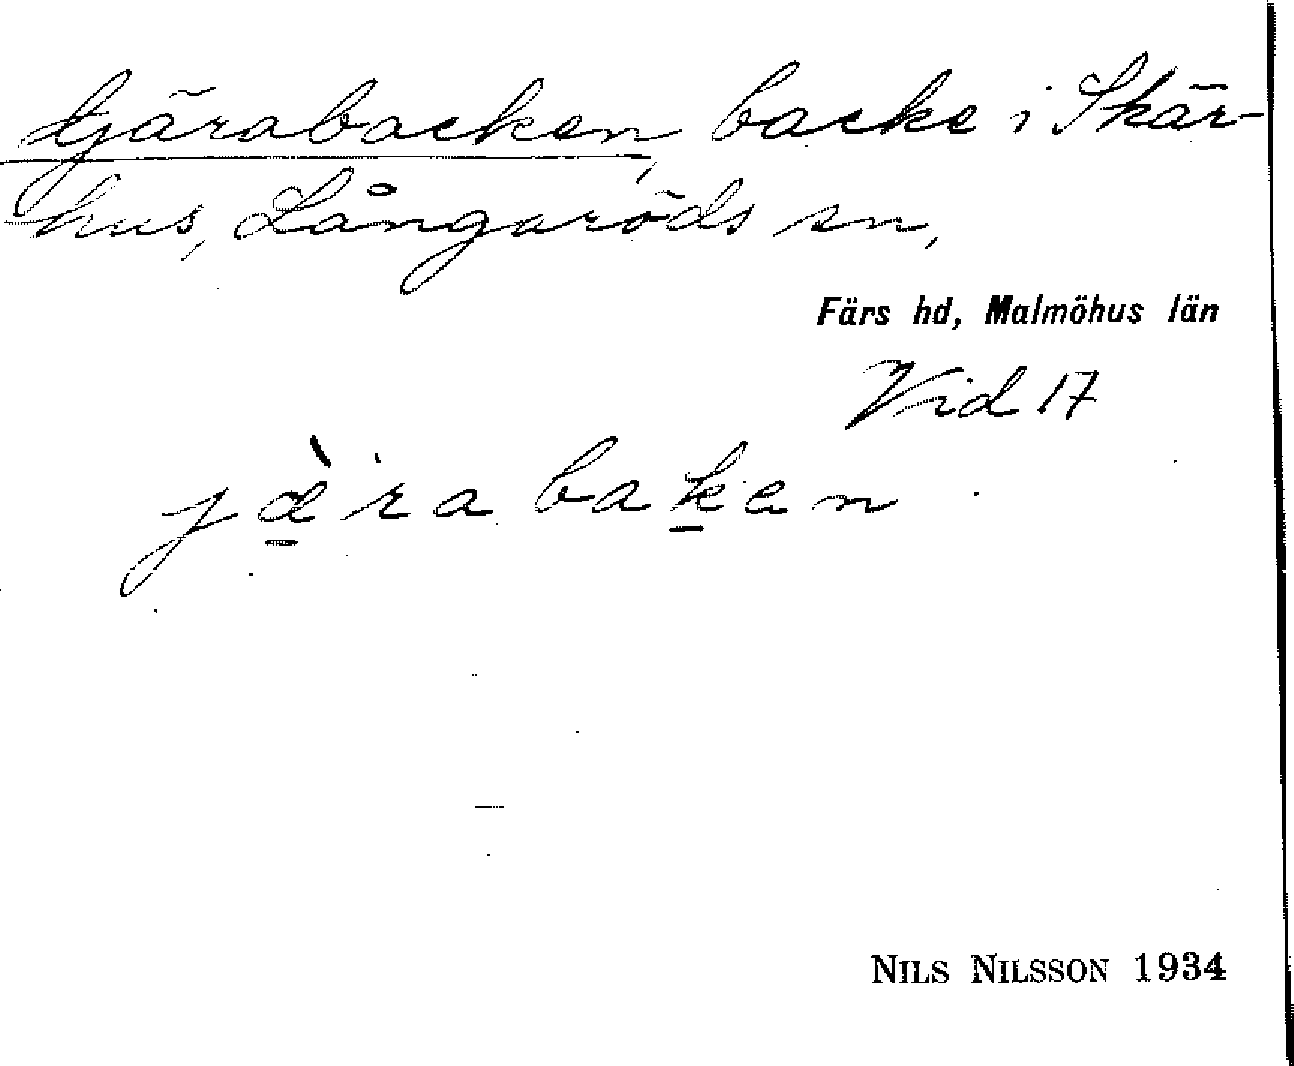 Gjärabacken, backe i Skär-
hus, Långaröds sn,
Färs hd, Malmöhus län
Vid 17
jæ̀ra baken
NILS NILSSON 1934